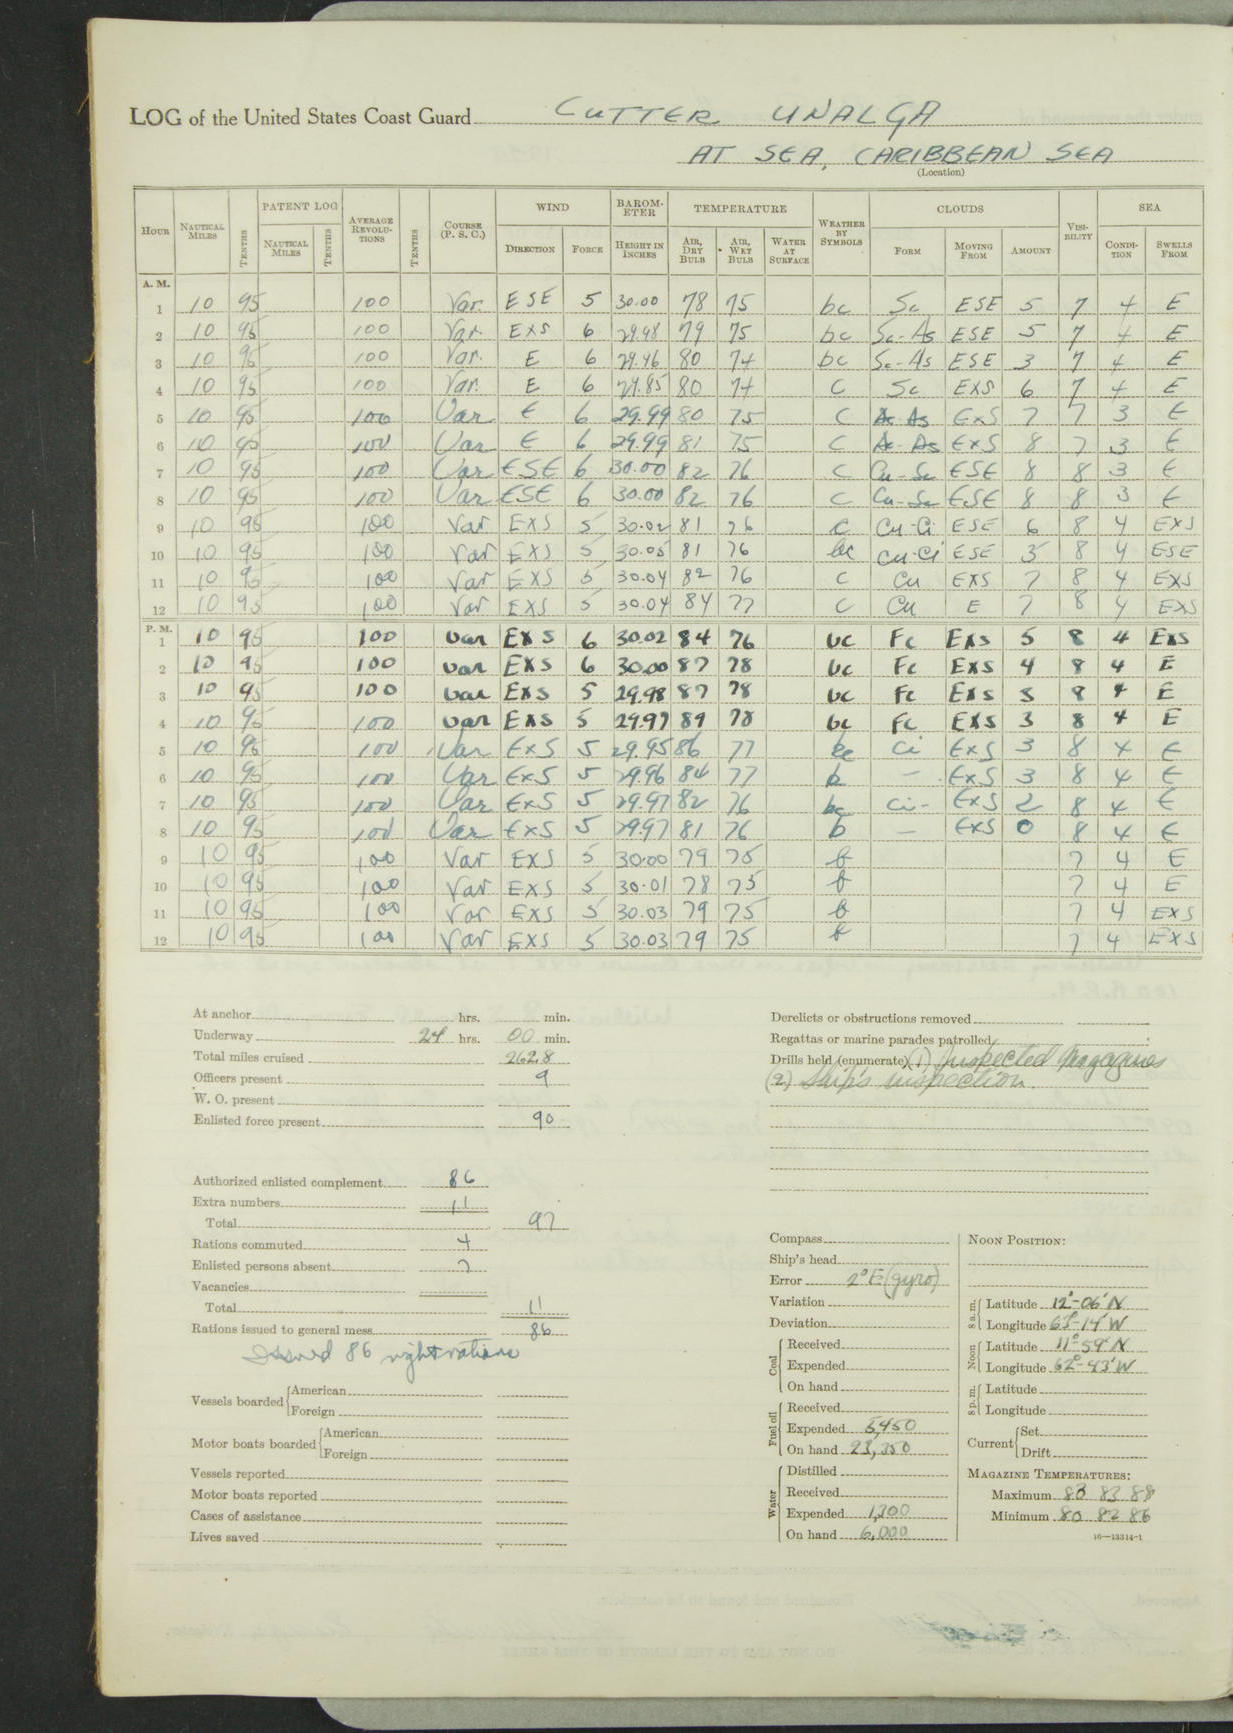 LOG of the United States Coast Guard CUTTER UNALGA
AT SEA, CARIBBEAN SEA
(Location)
HOUR NAUTICAL MILES TENTHS PATENT LOG NAUTICAL MILES TENTHS AVERAGE REVOLUTIONS TENTHS COURSE (P. S. C.) WIND DIRECTION FORCE BAROMETER HEIGHT IN INCHES TEMPERATURE AIR, DRY BULB AIR, WET BULB WATER AT SURFACE WEATHER BY SYMBOLS CLOUDS FORM MOVING FROM AMOUNT VISIBILITY SEA CONDITION SWELLS FROM
A. M.
1 10 95 100 Var. ESE 5 30.00 78 75 bc Sc ESE 5 7 4 E
2 10 95 100 Var. EXS 6 29.98 79 75 bc Sc-As ESE 5 7 4 E
3 10 95 100 Var. E 6 29.96 80 74 bc Sc-As ESE 3 7 4 E
4 10 95 100 Var. E 6 29.85 80 74 C Sc EXS 6 7 4 E
5 10 95 100 Var E 6 29.99 80 75 C Ac As EXS 7 7 3 E
6 10 95 100 Var E 6 29.99 81 75 C Ac-As EXS 8 7 3 E
7 10 95 100 Var ESE 6 30.00 82 76 C Cu-Sc ESE 8 8 3 E
8 10 95 100 Var ESE 6 30.00 82 76 C Cu-Sc ESE 8 8 3 E
9 10 95 100 Var EXS 5 30.02 81 76 C Cu-Ci ESE 6 8 4 EXS
10 10 95 100 Var EXS 5 30.05 81 76 bc Cu-Ci ESE 5 8 4 ESE
11 10 95 100 Var EXS 5 30.04 82 76 C Cu EXS 7 8 4 EXS
12 10 95 100 Var EXS 5 30.04 84 77 C Cu E 7 8 4 EXS
P. M.
1 10 95 100 var EXS 6 30.02 84 76 bc Fc EXS 5 8 4 EXS
2 10 95 100 var EXS 6 30.00 87 78 bc Fc EXS 4 8 4 E
3 10 95 100 var EXS 5 29.98 87 78 bc Fc EXS 3 8 4 E
4 10 95 100 var EXS 5 29.97 89 78 bc Fc EXS 3 8 4 E
5 10 95 100 Var EXS 5 29.95 86 77 bc Ci EXS 3 8 4 E
6 10 95 100 Var EXS 5 29.96 84 77 b — EXS 3 8 4 E
7 10 95 100 Var EXS 5 29.97 82 76 bc Ci- EXS 2 8 4 E
8 10 95 100 Var EXS 5 29.97 81 76 b — EXS 0 8 4 E
9 10 95 100 Var EXS 5 30.00 79 75 b 7 4 E
10 10 95 100 Var EXS 5 30.01 78 75 b 7 4 E
11 10 95 100 Var EXS 5 30.03 79 75 b 7 4 EXS
12 10 95 100 Var EXS 5 30.03 79 75 b 7 4 EXS
At anchor hrs. min.
Underway 24 hrs. 00 min.
Total miles cruised 262.8
Officers present 9
W. O. present
Enlisted force present 90
Authorized enlisted complement 86
Extra numbers 11
Total 97
Rations commuted 4
Enlisted persons absent 7
Vacancies
Total 11
Rations issued to general mess 86
Issued 86 night rations
Vessels boarded American
Foreign
Motor boats boarded American
Foreign
Vessels reported
Motor boats reported
Cases of assistance
Lives saved
Derelicts or obstructions removed
Regattas or marine parades patrolled
Drills held (enumerate) (1) Inspected Magazines
(2) Ship's inspection.
Compass
Ship's head
Error 2° E (gyro)
Variation
Deviation
Coal Received
Expended
On hand
Fuel oil Received
Expended 5,450
On hand 23,350
Water Distilled
Received
Expended 1,200
On hand 6,000
NOON POSITION:
8 a.m. Latitude 12°-06' N
Longitude 63°-14' W
Noon Latitude 11°-59' N
Longitude 62°-43' W
8 p.m. Latitude
Longitude
Current Set
Drift
MAGAZINE TEMPERATURES:
Maximum 83 83 88
Minimum 80 82 86
16—13314-1